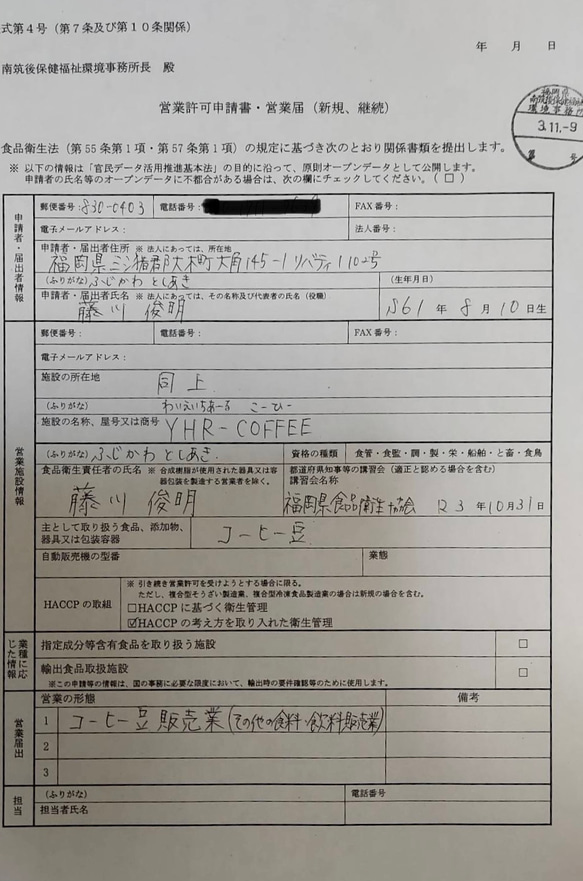 式第4号（第7条及び第10条関係）
年 月 日
南筑後保健福祉環境事務所長 殿
営業許可申請書・営業届（新規、継続）
福岡県
環境事務所
3.11.-9
第 号
食品衛生法（第55条第1項・第57条第1項）の規定に基づき次のとおり関係書類を提出します。
※ 以下の情報は「官民データ活用推進基本法」の目的に沿って、原則オープンデータとして公開します。
申請者の氏名等のオープンデータに不都合がある場合は、次の欄にチェックしてください。（□）
申請者・届出者情報
郵便番号：830-0403 電話番号： FAX番号：
電子メールアドレス： 法人番号：
申請者・届出者住所 ※ 法人にあっては、所在地
福岡県三潴郡大木町大角145-1 リバティ110号
(ふりがな) ふじかわ としあき (生年月日)
申請者・届出者氏名 ※ 法人にあっては、その名称及び代表者の氏名（役職）
藤川 俊明 S61年 8月 10日生
営業施設情報
郵便番号： 電話番号： FAX番号：
電子メールアドレス：
施設の所在地
同上
(ふりがな) わいえいちあーる こーひー
施設の名称、屋号又は商号 YHR-COFFEE
(ふりがな) ふじかわ としあき 資格の種類 食管・食監・調・製・栄・船舶・と畜・食鳥
食品衛生責任者の氏名 ※ 合成樹脂が使用された器具又は容器包装を製造する営業者を除く。
都道府県知事等の講習会（適正と認める場合を含む）
講習会名称
藤川 俊明 福岡県食品衛生協会 R3年10月31日
主として取り扱う食品、添加物、
器具又は包装容器 コーヒー豆
自動販売機の型番 業態
HACCPの取組
※ 引き続き営業許可を受けようとする場合に限る。
ただし、複合型そうざい製造業、複合型冷凍食品製造業の場合は新規の場合を含む。
□HACCPに基づく衛生管理
☑HACCPの考え方を取り入れた衛生管理
業種に応じた情報
指定成分等含有食品を取り扱う施設 □
輸出食品取扱施設 □
※この申請等の情報は、国の事務に必要な限度において、輸出時の要件確認等のために使用します。
営業届出
営業の形態 備考
1 コーヒー豆販売業(その他の食料・飲料販売業)
2
3
担当
(ふりがな) 電話番号
担当者氏名